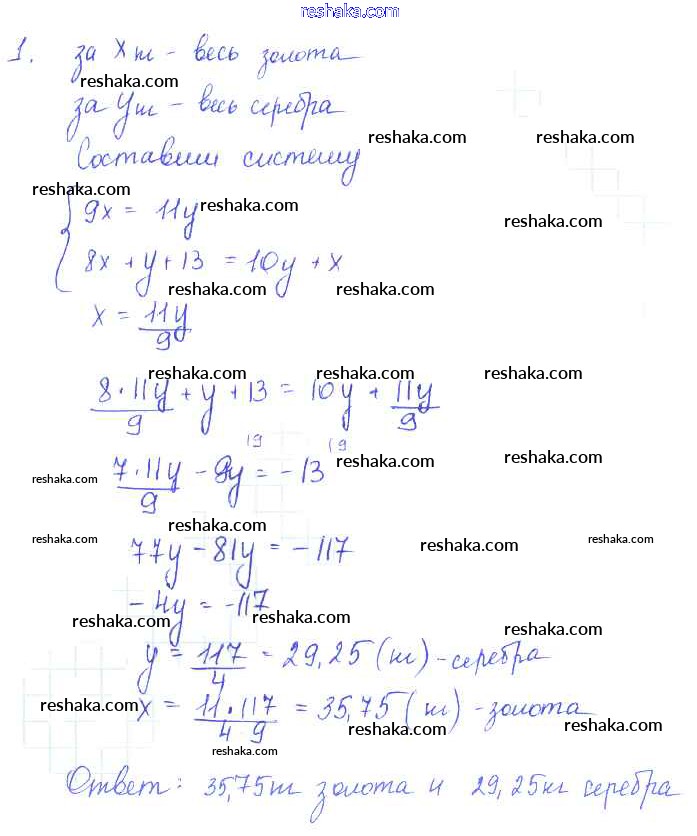 reshaka.com
1. за x т - весь золота
reshaka.com
за y т - весь серебра
reshaka.com reshaka.com
Составим систему
reshaka.com
9x = 11y
reshaka.com
reshaka.com
8x + y + 13 = 10y + x
reshaka.com reshaka.com
x = 11y/9
reshaka.com reshaka.com reshaka.com
8·11y/9 + y + 13 = 10y + 11y/9
reshaka.com reshaka.com
7·11y/9 - 9y |9 = -13 |9
reshaka.com
reshaka.com
77y - 81y = -117
reshaka.com reshaka.com reshaka.com
-4y = -117
reshaka.com reshaka.com reshaka.com
y = 117/4 = 29,25 (кг) - серебра
reshaka.com reshaka.com
x = 11·117/4·9 = 35,75 (кг) - золота
reshaka.com reshaka.com
reshaka.com
Ответ: 35,75 кг золота и 29,25 кг серебра